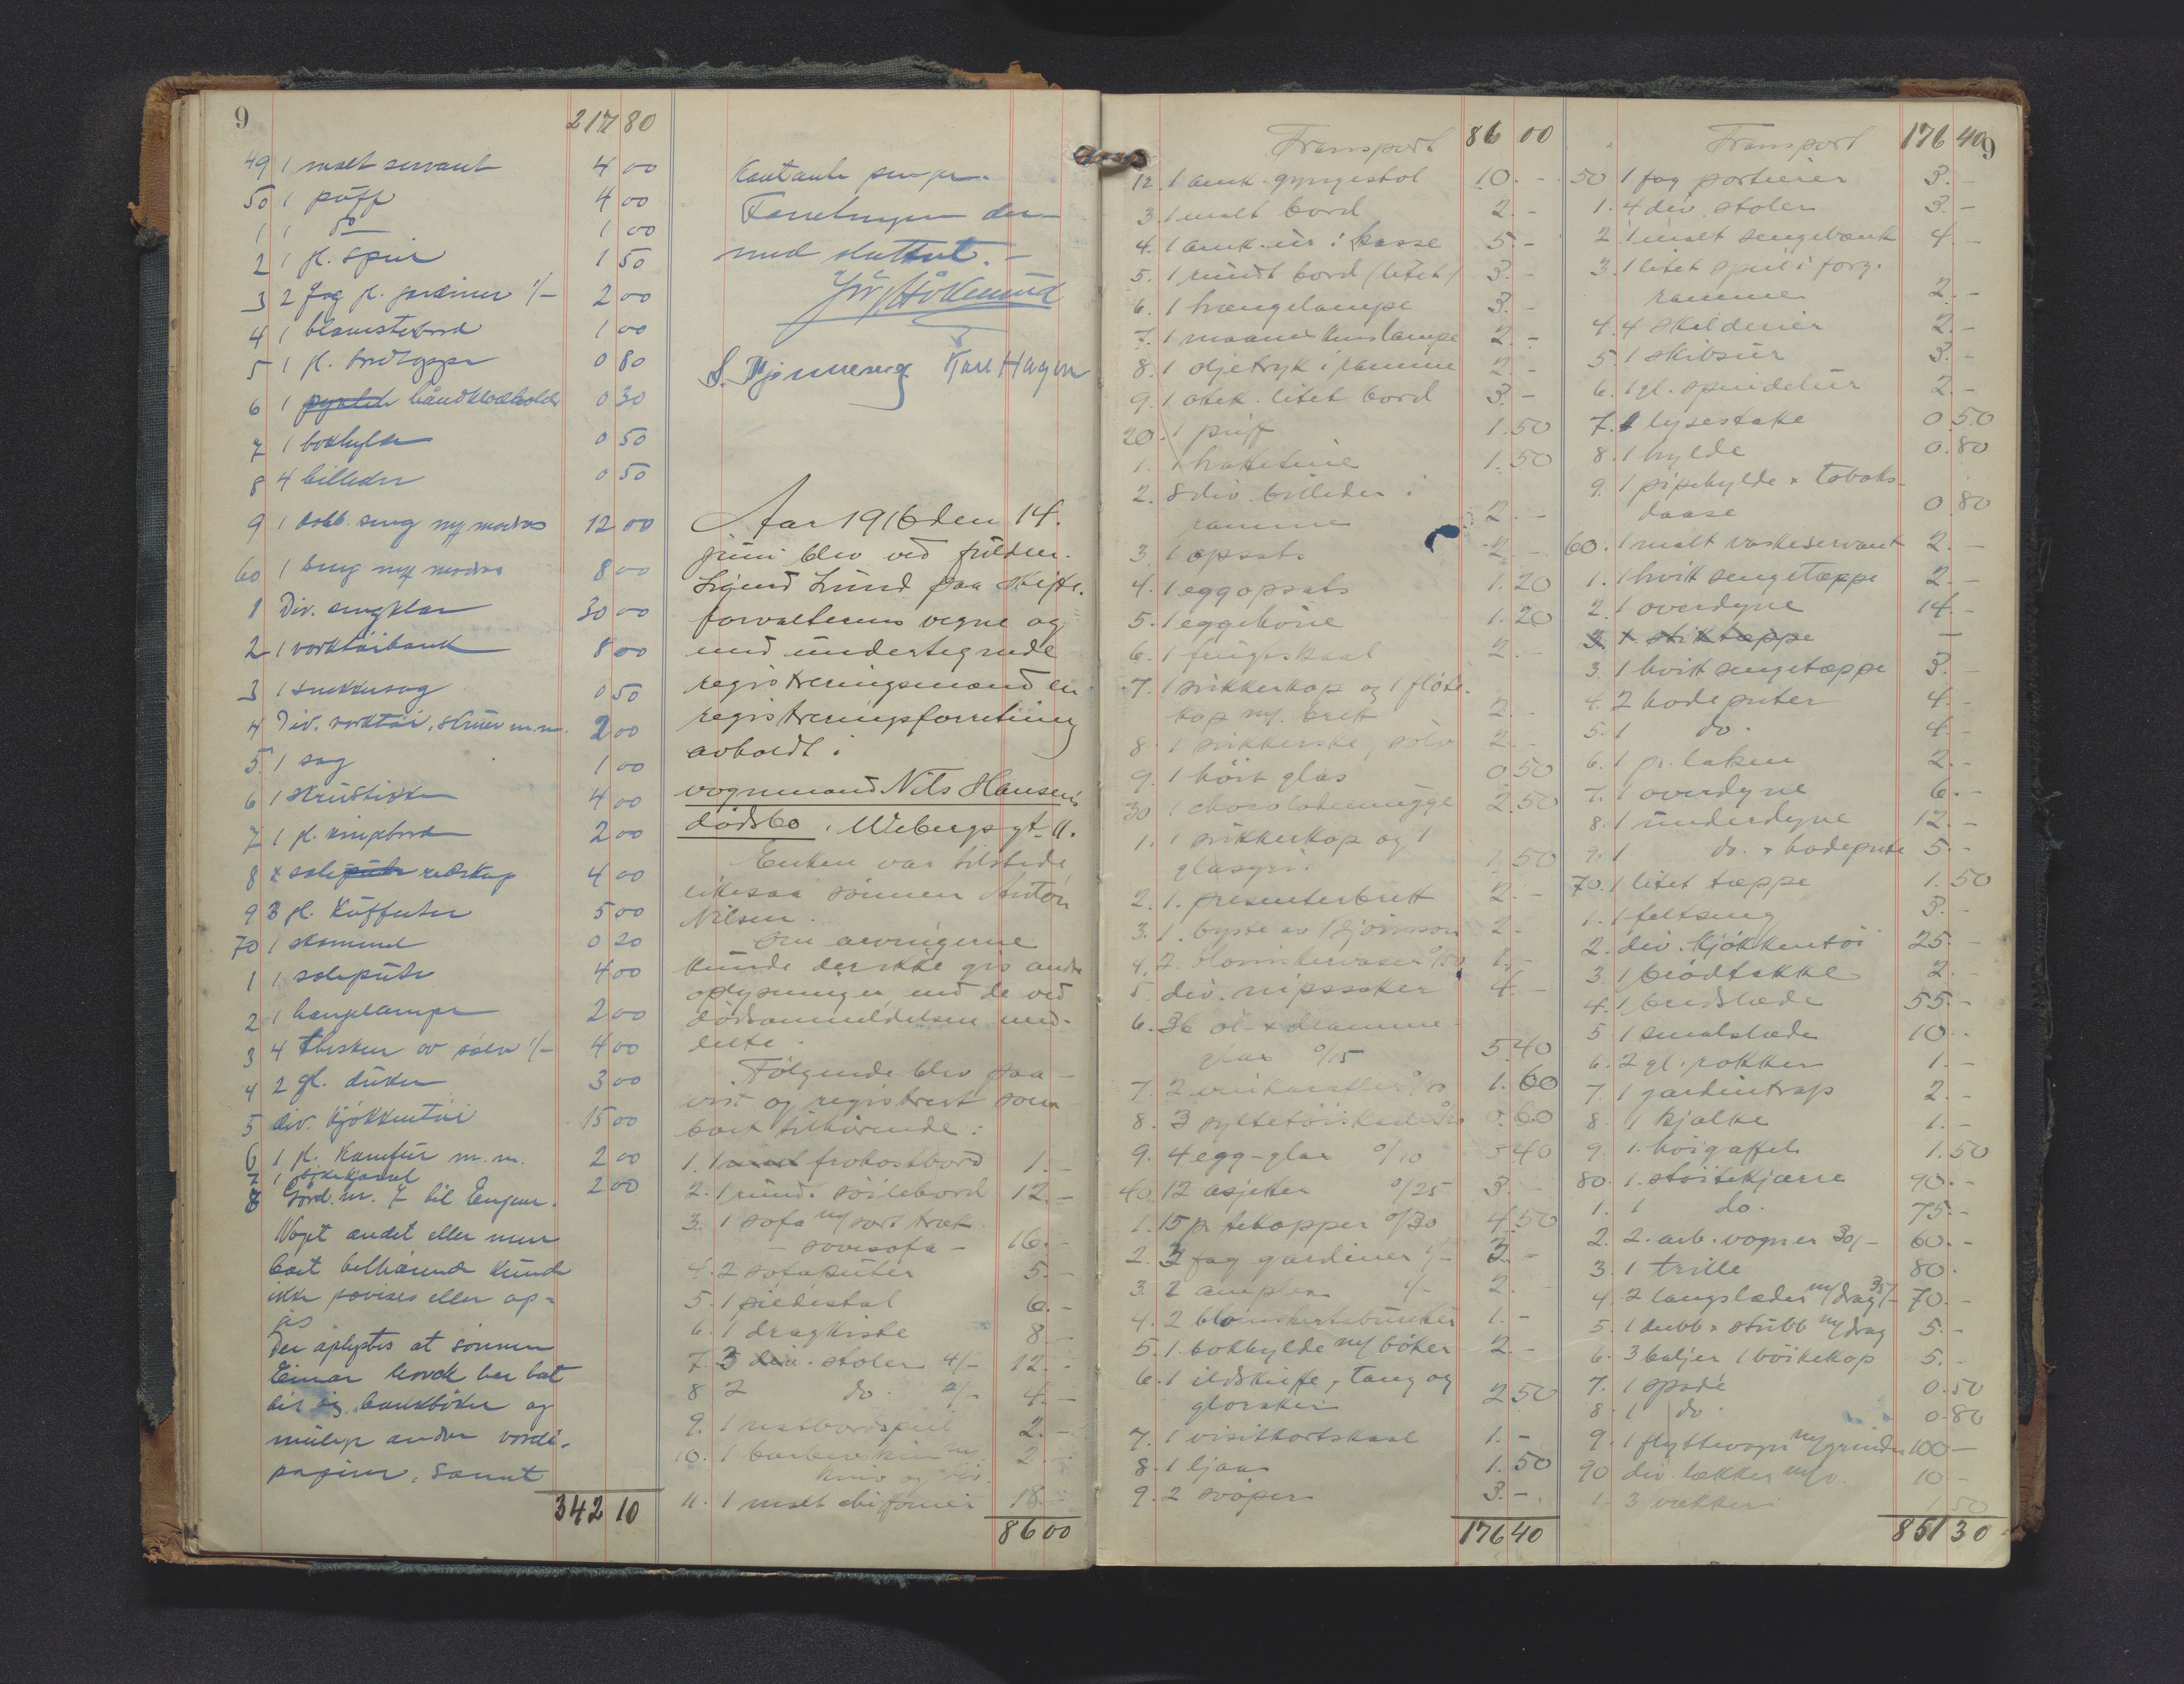 9
217 80
49 1 malt servant 4 00
50 1 puff 4 00
1 1 do 1 00
2 1 gl. speil 1 50
3 2 fag gl. gardiner 1/- 2 00
4 1 blomsterbord 1 00
5 1 gl. bordteppe 0 80
6 1 håndklædholder 0 30
7 1 bokhylde 0 50
8 4 billeder 0 50
9 1 dobb. seng m/ madras 12 00
60 1 seng m/ madras 8 00
1 Div. sengklær 30 00
2 1 verktøibenk 8 00
3 1 snekkersag 0 50
4 Div. verktøi, skruer m.m. 2 00
5 1 sag 1 00
6 1 skrustikke 4 00
7 1 gl. klapbord 2 00
8 redskap 4 00
9 3 gl. Kufferter 5 00
70 1 skammel 0 20
1 1 sofapute 4 00
2 1 hengelampe 2 00
3 4 theskeer av sølv 1/- 4 00
4 2 gl. duker 3 00
5 div. kjøkkentøi 15 00
6 1 gl. Kamfur m.m. 2 00
7 1 2 00
8 Gård nr. 7 til
Noget andet eller mere
boet tilhørende kunde
ikke paavises eller op-
gis
Det oplystes at sønnen
Einar hovde har tat
til sig bankbøker og
mulige andre verdi-
papirer, samt
342 10
kontante penger.
Forretningen der-
med sluttet. -
Karl Hagen
Aar 1916 den 14.
juni blev ved fuldm.
Sigurd Lund paa skifte-
forvalterens vegne og
med undertegnede
registreringsmænd en
registreringsforretning
avholdt i
vognmand Nils Hansens
dødsbo, Webergsgt. 11.
Enken var tilstede,
likesaa sønnen Anton
Nilsen.
Om arvingerne
kunde der ikke gis andre
oplysninger end de ved
dødsanmeldelsen med-
delte.
Følgende blev paa-
vist og registrert som
boet tilhørende:
1. 1 frokostbord 1. -
2. 1 rund. søilebord 12. -
3. 1 sofa m/ sort træk
- sovesofa - 16. -
4. 2 sofaputer 5. -
5. 1 piedestal 6. -
6. 1 dragkiste 8. -
7. 3 stoler 4/- 12. -
8 2 do. 2/- 4. -
9. 1 natbordspeil 2. -
10. 1 2. -
kniv og
11. 1 malt chifonier 18. -
86 00
Transport 86 00
12. 1 amk. gyngestol 10. -
3. 1 malt bord 2. -
4. 1 amk. ur i kasse 5. -
5. 1 rundt bord (litet) 3. -
6. 1 hængelampe 3. -
7. 1 maaneskinslampe 2. -
8. 1 oljetryk i ramme 2. -
9. 1 litet bord 3. -
20. 1 puff 1.50
1. 1 1.50
2. 8 div. billeder i
ramme 2. -
3. 1 opsats 2. -
4. 1 eggopsats 1.20
5. 1 eggehøne 1.20
6. 1 frugtskaal 2. -
7. 1 sukkerkop og 1 fløte-
kop m/ brett 2. -
8. 1 sukkerske, sølv 2. -
9. 1 høit glas 0.50
30 1 chocolademugge 2.50
1. 1 sukkerkop og 1
glasgris 1.50
2. 1. presenterbrett 2. -
3. 1. byste av Bjørnson 2. -
4. 2. blomstervaser 0/50 1. -
5. div. nipssaker 4. -
6. 36 øl- & dramme-
glas 0/15 5.40
7. 2 vinkarafler 0/80 1.60
8. 3 syltetøiskaaler 0.60
9. 4 egg-glas 0/10 40
40. 12 asjetter 0/25 3. -
1. 15 p. tekopper 0/30 4.50
2. 3 fag gardiner 1/- 3. -
3. 2 ampler 1/- 2. -
4. 2 1. -
5. 1 bokhylde m/ bøker 2. -
6. 1 ildskuffe, tang og
gloraker 2.50
7. 1 visitkortskaal 1. -
8. 1 ljaa 1.50
9. 2 svøper 3. -
176 40
Transport 176 40
9
50 1 fag portierer 3. -
1. 4 div. stoler 3. -
2. 1 malt sengebænk 4. -
3. 1 litet speil i forg.
ramme 2. -
4. 4 skilderier 2. -
5. 1 skibsur 3. -
6. 1 gl. speidelur 2. -
7. lysestake 0.50
8. 1 hylde 0.80
9. 1 pipehylde & tobaks-
daase 0.80
60. 1 malt vaskeservant 2. -
1. 1 hvitt sengetæppe 2. -
2. 1 overdyne 14. -
3. 1 stiktæppe -
3. 1 hvitt sengetæppe 3. -
4. 2 hodeputer 4. -
5. 1 do. 4. -
6. 1 pr. laken 2. -
7. 1 overdyne 6. -
8. 1 underdyne 12. -
9. 1 do. & hodepute 5. -
70. 1 litet tæppe 1.50
1. 1 feltseng 3. -
2. div. kjøkkentøi 25. -
3. 1 brødtakke 2. -
4. 1 bredslæde 55. -
5. 1 smalslæde 10. -
6. 2 gl. rokker 1. -
7. 1 gardintrap 2. -
8. 1 kjælke 1. -
9. 1. høigaffel 1.50
80. 1. støitekjærre 90. -
1. 1 do. 75. -
2. 2. arb. vogner 30/- 60. -
3. 1 trille 80.
4. 2 langslæder m/ drag 35/- 70. -
5. 1 m/ drag 5. -
6. 3 baljer 1 bøikekop 5. -
7. 1 spade 0.50
8. 1 do. 0.80
9. 1 flyttevogn m/ grinder 100 -
90 div. lækker m.v. 10 -
1. 3 1.50
851 30